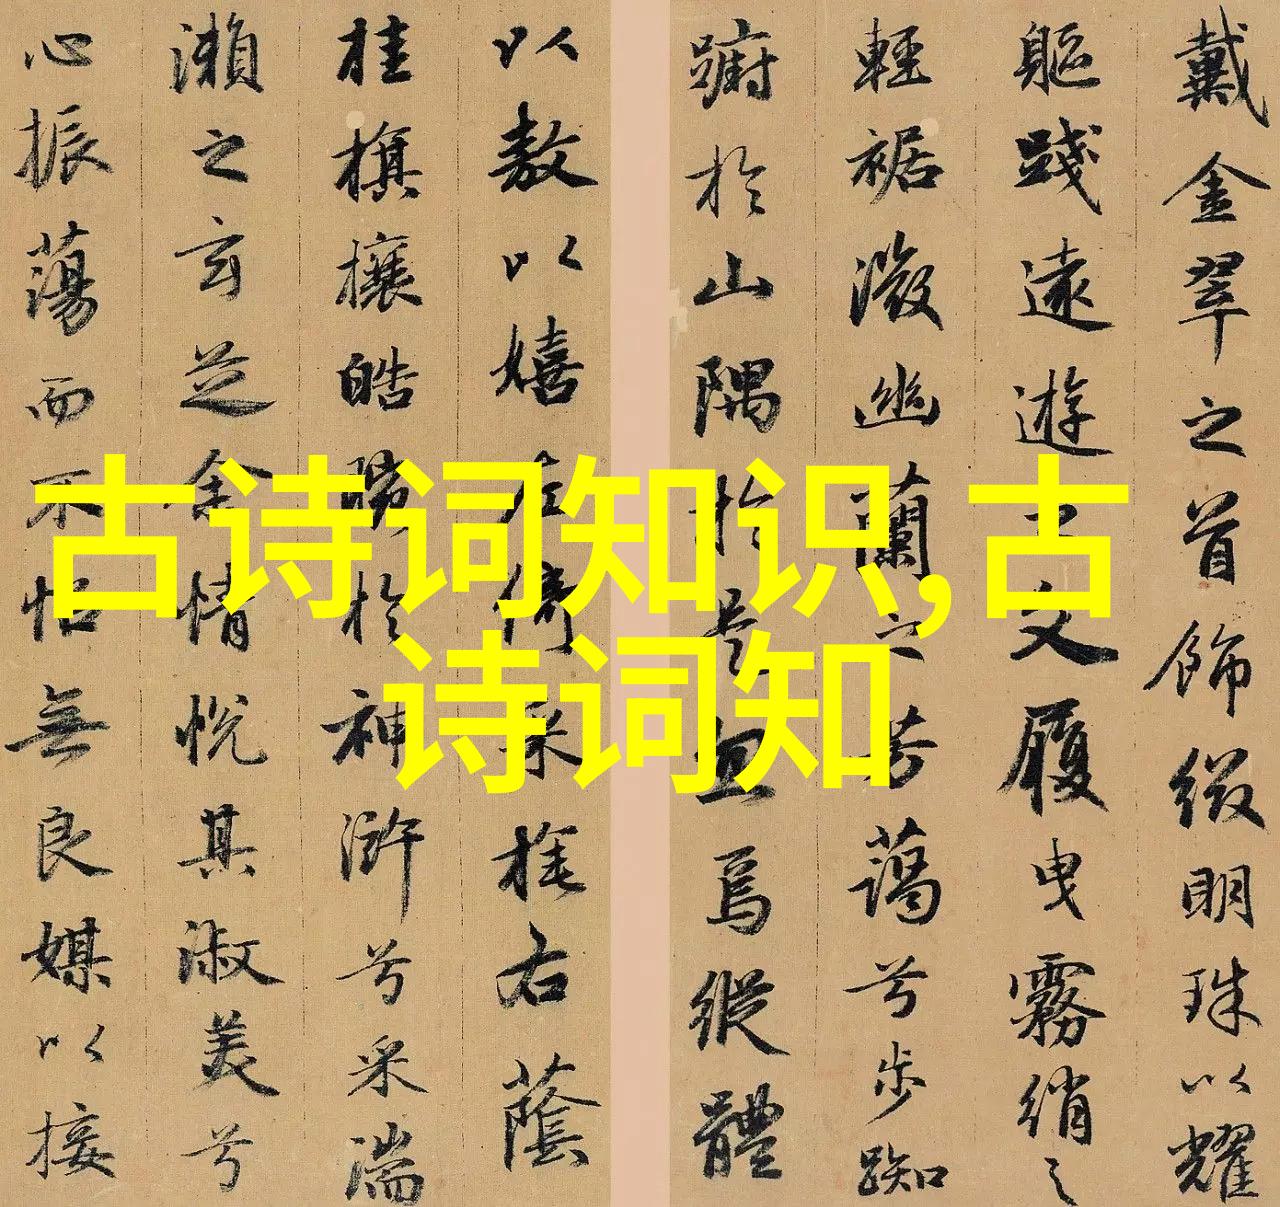 戴金翠之首飾綴明珠以耀
軀踐遠遊之文履曳霧綃之
輕裾微幽蘭之芳藹兮步踟
躕於山隅於是忽焉縱體
以敖以嬉左倚采旄右蔭
桂旗攘皓腕於神滸兮采湍
瀨之玄芝余情悅其淑美兮
心振蕩而不怡無良媒以接
古诗词知识,古
诗词知